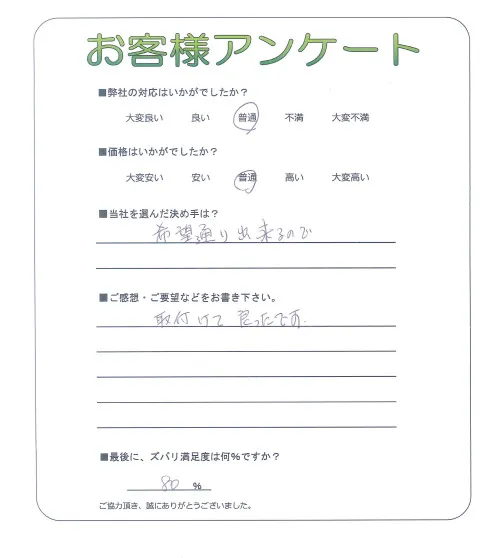 お客様アンケート
■弊社の対応はいかがでしたか？
大変良い 良い 普通 不満 大変不満
■価格はいかがでしたか？
大変安い 安い 普通 高い 大変高い
■当社を選んだ決め手は？
希望通り出来るので
■ご感想・ご要望などをお書き下さい。
取付けて良ったです.
■最後に、ズバリ満足度は何%ですか？
80 %
ご協力頂き、誠にありがとうございました。